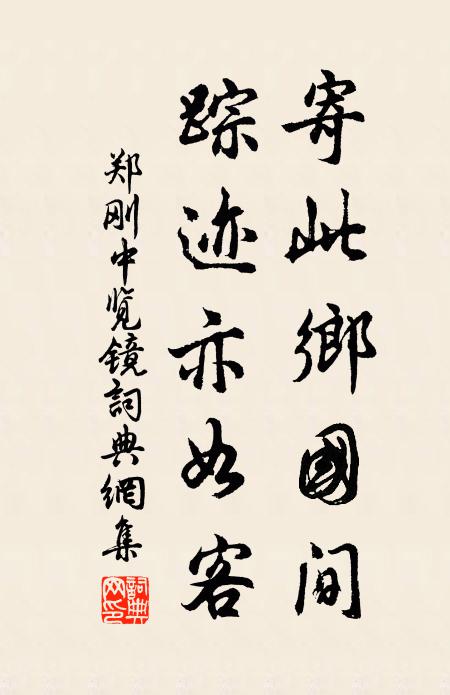 寄此鄉國间
踪迹亦如客
郑刚中览镜詞典網集
詞典網印